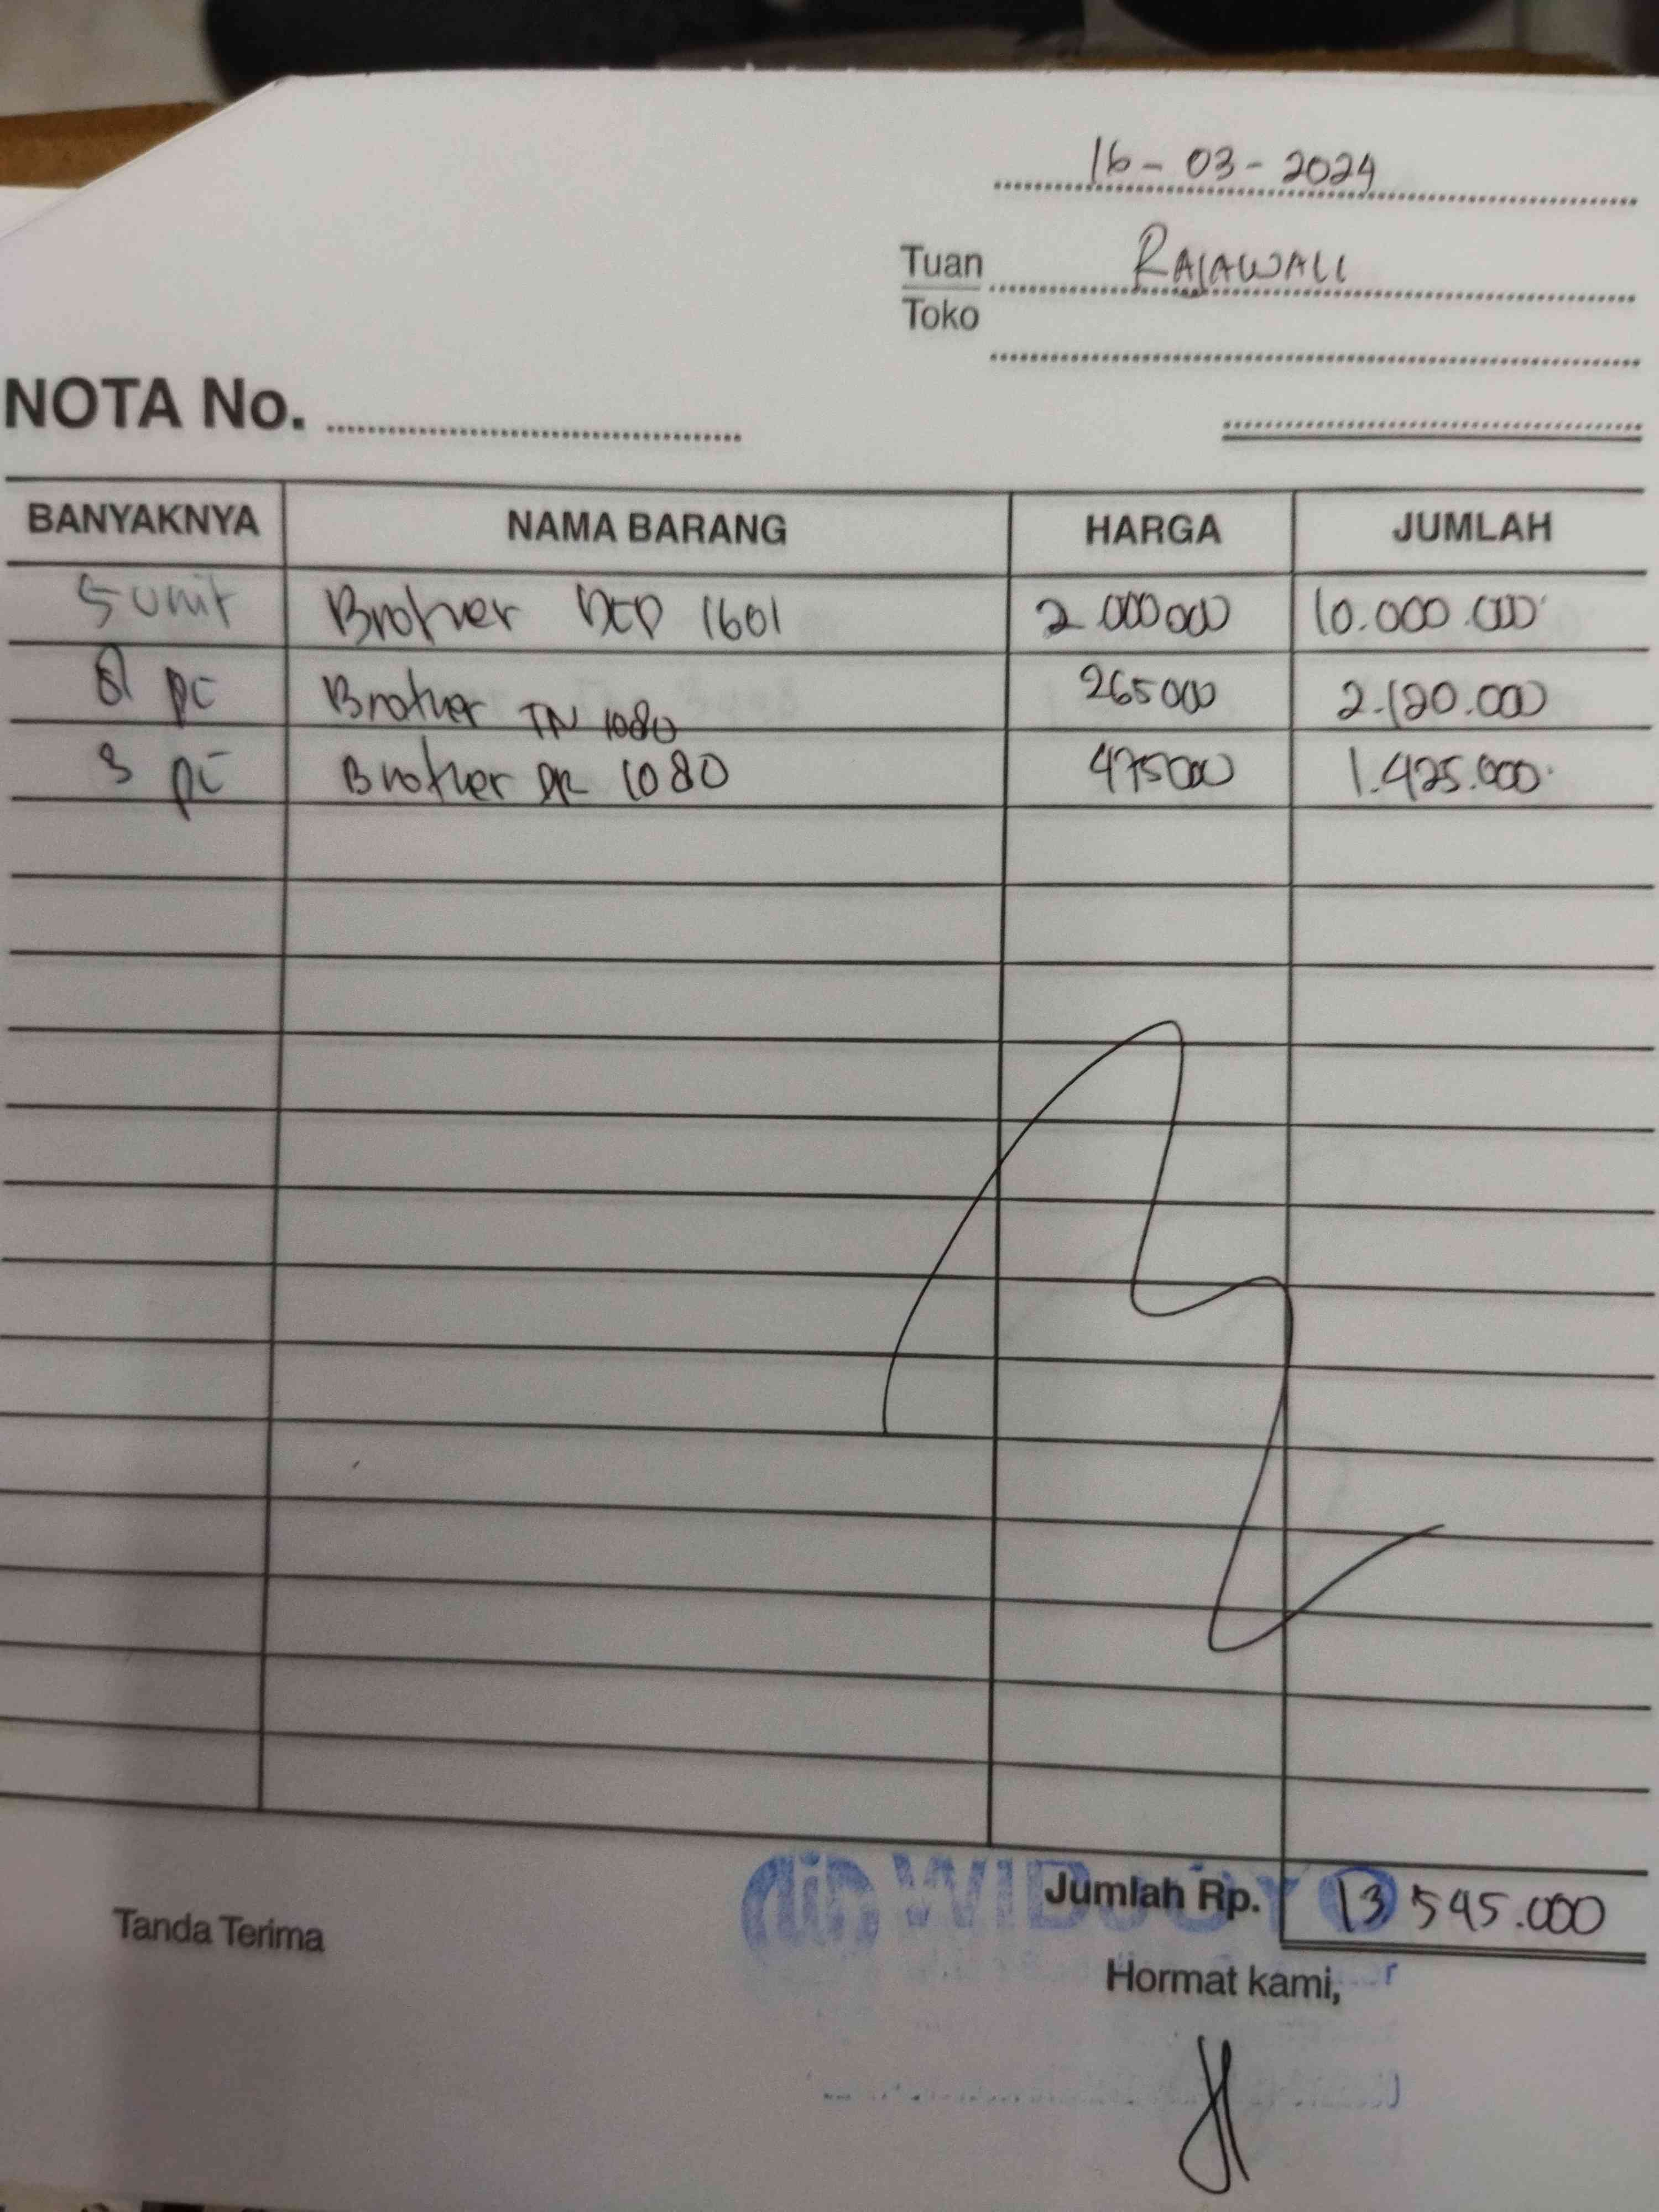 16 - 03 - 2024
Tuan RAJAWALI
Toko
NOTA No.
BANYAKNYA NAMA BARANG HARGA JUMLAH
5 unit Brother DCP 1601 2.000000 10.000.000
8 pc Brother TN 1080 265000 2.120.000
3 pc Brother DR 1080 475000 1.425.000
Jumlah Rp. 13.545.000
Tanda Terima
Hormat kami,